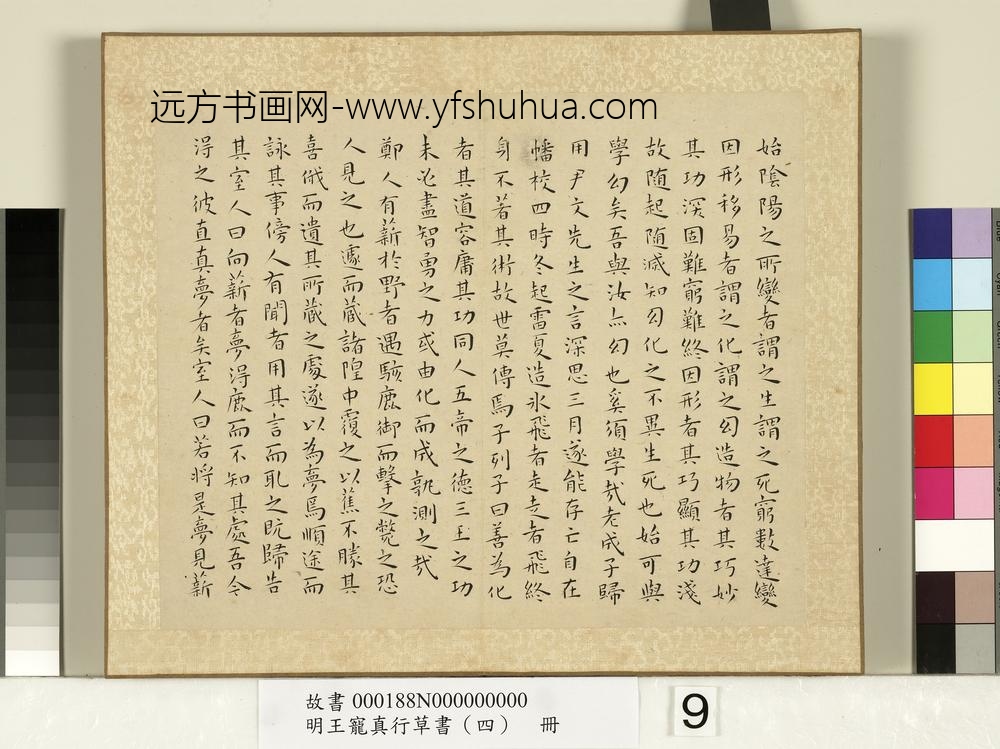 远方书画网-www.yfshuhua.com
始陰陽之所變者謂之生謂之死窮數達變
因形移易者謂之化謂之幻造物者其巧妙
其功深固難窮難終因形者其巧顯其功淺
故随起随滅知幻化之不異生死也始可與
學幻矣吾與汝亦幻也奚須學哉老成子歸
用尹文先生之言深思三月遂能存亡自在
幡校四時冬起雷夏造冰飛者走走者飛終
身不著其術故世莫傳焉子列子曰善為化
者其道容庸其功同人五帝之德三王之功
未必盡智勇之力或由化而成孰測之哉
鄭人有薪於野者遇駭鹿御而擊之斃之恐
人見之也遽而蔵諸隍中覆之以蕉不勝其
喜俄而遺其所蔵之處遂以為夢焉順途而
詠其事傍人有聞者用其言而取之既歸告
其室人曰向薪者夢得鹿而不知其處吾今
得之彼直真夢者矣室人曰若将是夢見薪
故書 000188N000000000
明王寵真行草書（四） 冊
9